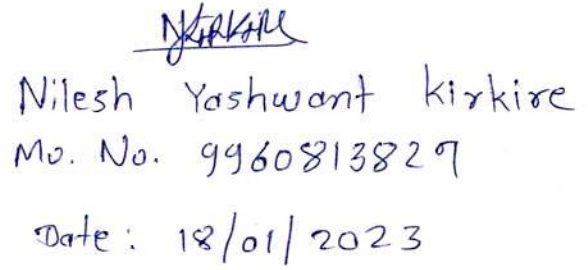 NKirkire
Nilesh Yashwant kirkire
Mo. No. 9960813829
Date: 18/01/2023